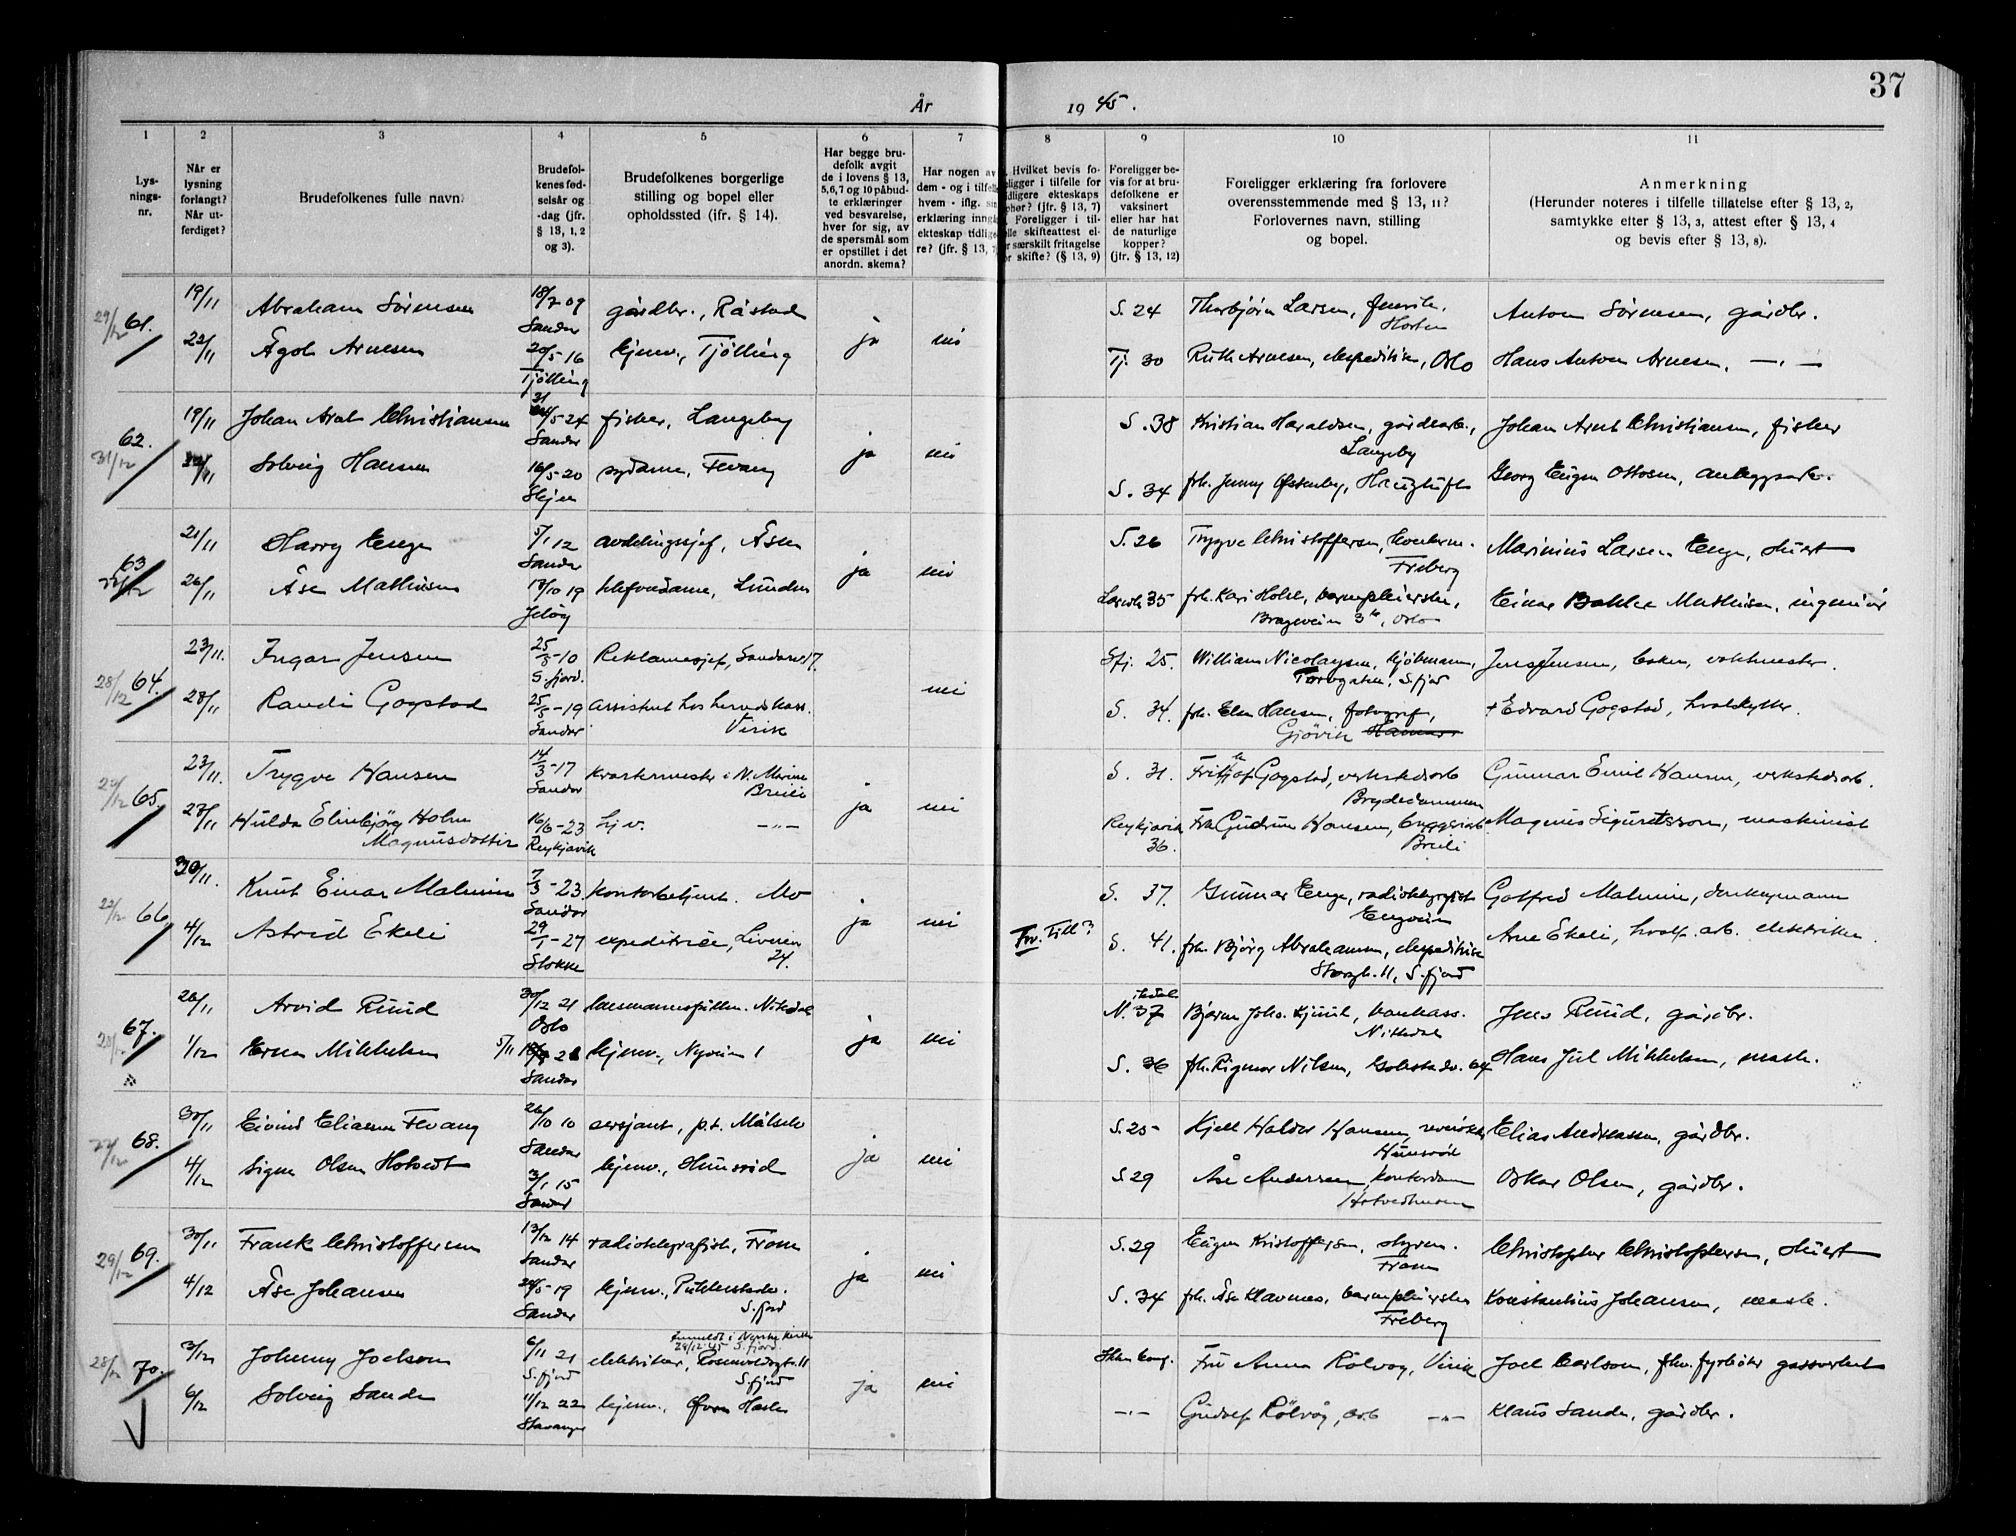 37
År 1945.
1 2 3 4 5 6 7 8 9 10 11
Lys-
nings-
nr.
Når er
lysning
forlangt?
Når ut-
ferdiget?
Brudefolkenes fulle navn.
Brudefol-
kenes fød-
selsår og
-dag (jfr.
§ 13, 1, 2
og 3).
Brudefolkenes borgerlige
stilling og bopel eller
opholdssted (jfr. § 14).
Har begge bru-
defolk avgit
de i lovens § 13,
5,6,7 og 10 påbud-
te erklæringer
ved besvarelse,
hver for sig, av
de spørsmål som
er opstillet i det
anordn. skema?
Har nogen av
dem - og i tilfelle
hvem - iflg. sin
erklæring inngå
ekteskap tidlige-
re? (jfr. § 13, 7)
Hvilket bevis fo-
ligger i tilfelle for
dligere ekteskaps
phør? (jfr. § 13, 7)
Foreligger i til-
elle skifteattest el-
r særskilt fritagelse
or skifte? (§ 13, 9)
Foreligger be-
vis for at bru-
defolkene er
vaksinert
eller har hat
de naturlige
kopper?
(jfr. § 13, 12)
Foreligger erklæring fra forlovere
overensstemmende med § 13, 11?
Forlovernes navn, stilling
og bopel.
Anmerkning
(Herunder noteres i tilfelle tillatelse efter § 13, 2,
samtykke efter § 13, 3, attest efter § 13, 4
og bevis efter § 13, 8).
29/12 61. 19/11 Abraham Sørensen 18/7 09 Sandar gårdbr., Råstad S. 24 Thorbjørn Larsen, Horten Anton Sørensen, gårdbr.
22/11 Ågot Arnesen 20/5-16 Tjölling hjemv., Tjölling ja nei Tj. 30 Ruth Arnesen, ekspeditrise, Oslo Hans Anton Arnesen, —"—
62. 31/12 19/11 Johan Arnt Christiansen 21/5-24 Sandar fisker, Langeby S. 38 Kristian Haraldsen, gårdsarb., Langeby Johan Arnt Christiansen, fisker
Solveig Hansen 16/5-20 Skjee sydame, Fevang ja nei S. 34 frk. Jenny Østenby, Haughuft Georg Eugen Ottosen, anleggsarb.
63 21/11 Harry Enge 5/1 12 Sandar avdelingssjef, Åsen S. 26 Trygve Christoffersen, Freberg Marinius Larsen Enge,
26/11 Åse Mathisen 17/10 19 Jeløy telefondame, Lunden ja nei Larvik 35 frk. Kari Holst, barnepleierske, Brageveien 3, Oslo Einar Bakke Mathisen, ingeniør
28/12 64. 23/11. Ingar Jensen 25/8-10 S.fjord. Reklamesjef, Sandarv. 17. Sfj. 25. William Nicolaysen, kjöbmann, Torvgaten, S.fjord Jens Jensen, vaktmester.
28/11 Randi Gogstad 25/5-19 Sandar assistent hos herredskass. Virik nei S. 34. frk. Else Hansen, fotograf, Gjövik Hamar + Edvard Gogstad, hvalskytter.
22/12 65. 23/11. Trygve Hansen 14/3-17 Sandar Kvartermester i N. Marine Breili S. 31. Fritjof Gogstad, verkstedsarb Brydedammen Gunnar Emil Hansen, verkstedsarb.
27/11 Hulda Elinbjörg Holm Magnusdottir 16/6-23 Reykjavik hjv. —"— ja nei Reykjavik 36. Fru Gudrun Hansen, Breili Magnus Sigurdsson, maskinist
22/12 66. 30/11. Knut Einar Malmin 7/3-23. Sandar Kontorbetjent. Mo S. 37. Gunnar Enge, radiotelegrafist Engveien Gotfred Malmin, donkeymann
4/12 Astrid Ekeli 29/1-27 Stokke expeditrise, Liveien 24. ja nei Forv. Till? S. 41. frk. Björg Abrahamsen, ekspeditrise Storgt. 11, S.fjord Arne Ekeli, hvalf. arb. elektriker
67. 26/11 Arvid Ruud 30/12 21 Oslo lensmannsfullm. Nittedal N.ittedal 37 Bjarne Joh. Kjuul, bankass. Nittedal Jens Ruud, gårdbr.
1/12 Erna Mikkelsen 5/11 21 Sandar hjemv., Nyveien 1 ja nei S. 36 frk. Rigmor Nilsen, Gokstadv. 64 Hans Jul Mikkelsen, mask.
22/12 68. 30/11 Eivind Eliassen Fevang 26/10 10 Sandar sersjant, p.t. Målselv S. 25 Kjell Haldor Hansen, Hunsrød Elias Andreassen, gårdbr.
4/12 Signe Olsen Hotvedt 3/1 15 Sandar hjemv., Hunsrød ja nei S. 29 Åse Andersen, kontordame Hotvedtmoen Oskar Olsen, gårdbr.
29/12 69. 30/11 Frank Christoffersen 13/12 14 Sandar radiotelegrafist, Fram S. 29 Eugen Kristoffersen, styrm. Fram Christopher Christophersen,
4/12 Åse Johansen 24/5-19 Sandar hjemv., Pukkestadv. S.fjord ja nei S. 34 frk. Åse Klavenes, barnepleierske Freberg Konstantius Johansen, mask.
Anmeldt i Norske Kirke 29/12 45 S.fjord.
28/12 70. 3/12 Johnny Joelson 6/11 21 S.fjord elektriker, Rosenvoldsgt. 11 S.fjord Fru Anna Rölvåg, Virik Joel Carlson, fyrbøter gassverket
6/12 Solveig Sande 11/12 22 Stavanger hjemv., Øvre Hasle ja nei —"— Gudolf Rölvåg, arb —"— Klaus Sande, gårdbr.